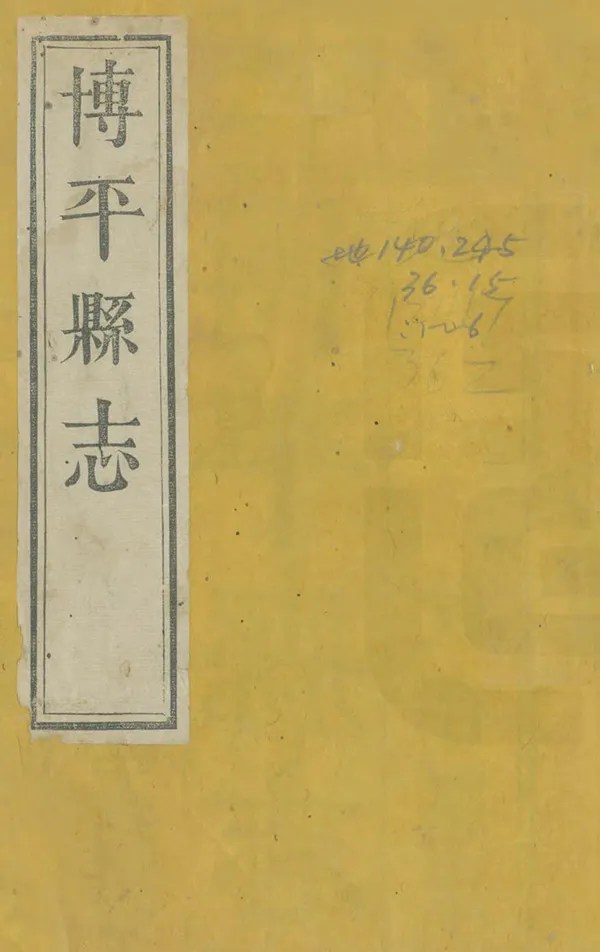 博平縣志
地140.245
36.15
:1~6